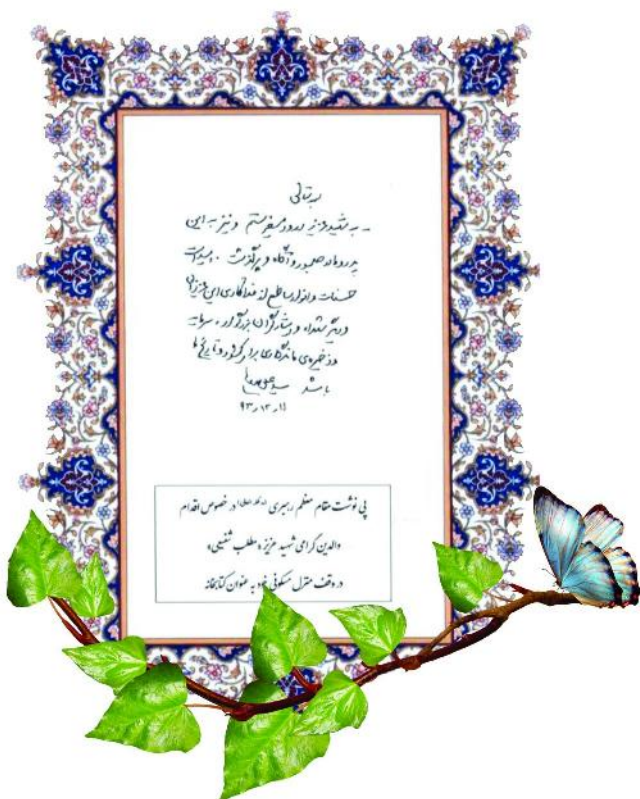 بسمه‌تعالی
ـ به شهید عزیز درود میفرستم و نیز به این
پدر و مادر صبور و آگاه و پرگذشت. بیشک
حسنات و انوار ساطع از فداکاری این عزیزان
و دیگر شهداء و ایثارگران بزرگوار، سرمایه
و ذخیره‌ی ماندگاری برای کشور و تاریخ ما
باشد سید علی خامنه‌ای
۹۳،۱۲،۱۱
پی نوشت مقام معظم رهبری (مدظله العالی) در خصوص اقدام
والدین گرامی شهید عزیز «مطلب شفیعی»
در وقف منزل مسکونی خود به عنوان کتابخانه